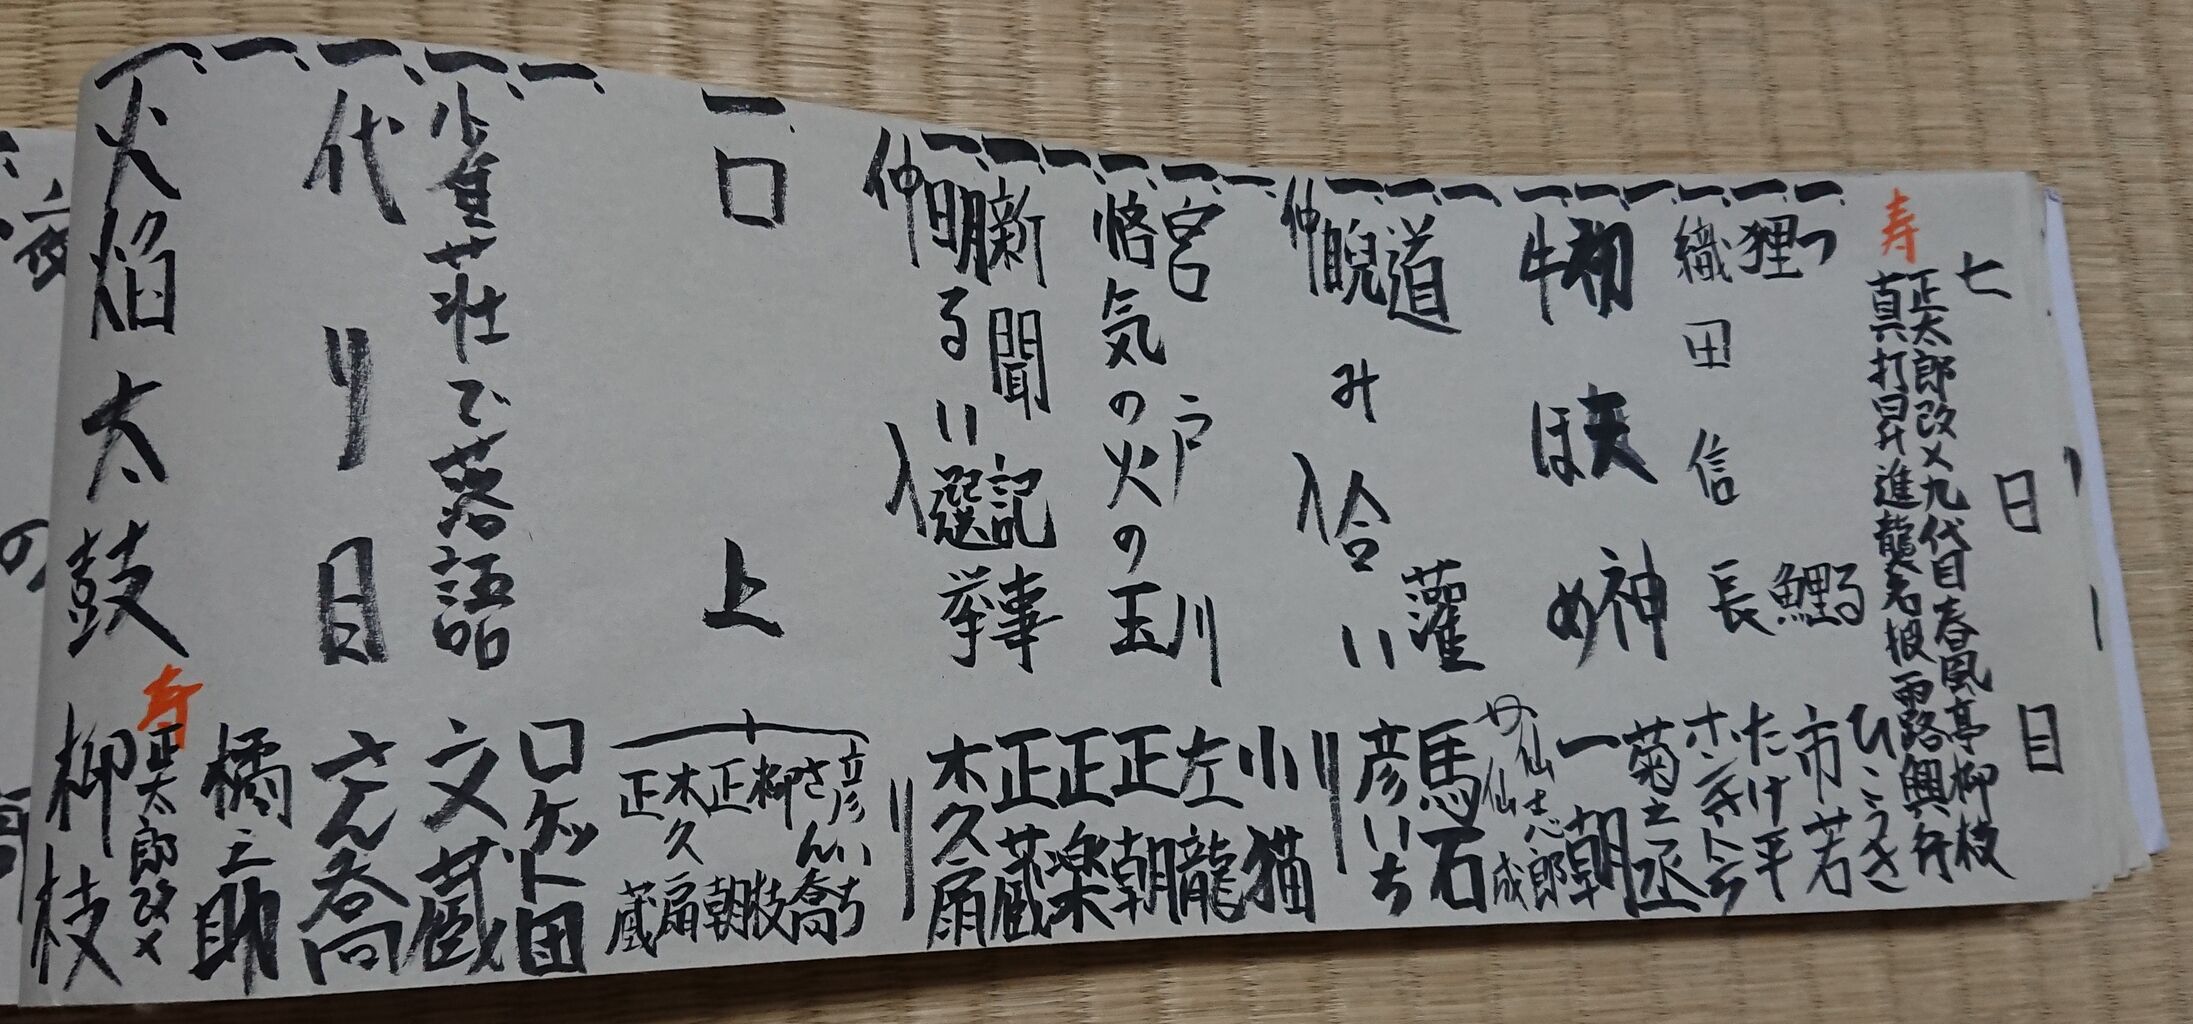 七日目
寿
正太郎改メ九代目春風亭柳枝
真打昇進襲名披露興行
一、つる ひこうき
一、狸鯉 市若
一、織田信長 たけ平
一、ホンキートンク
一、初天神 菊之丞
一、牛ほめ 一朝
一、仙志郎
仙成
一、道灌 馬石
一、睨み合い 彦いち
仲入り
一、小猫
一、宮戸川 左龍
一、悋気の火の玉 正朝
一、正楽
一、新聞記事 正蔵
一、明るい選挙 木久扇
仲入り
一、口上
彦いち
さん喬
柳枝
正朝
木久扇
正蔵
一、ロケット団
一、少量荘で落語 文蔵
一、代り目 さん喬
一、橘之助
寿
正太郎改メ
一、火焔太鼓 柳枝